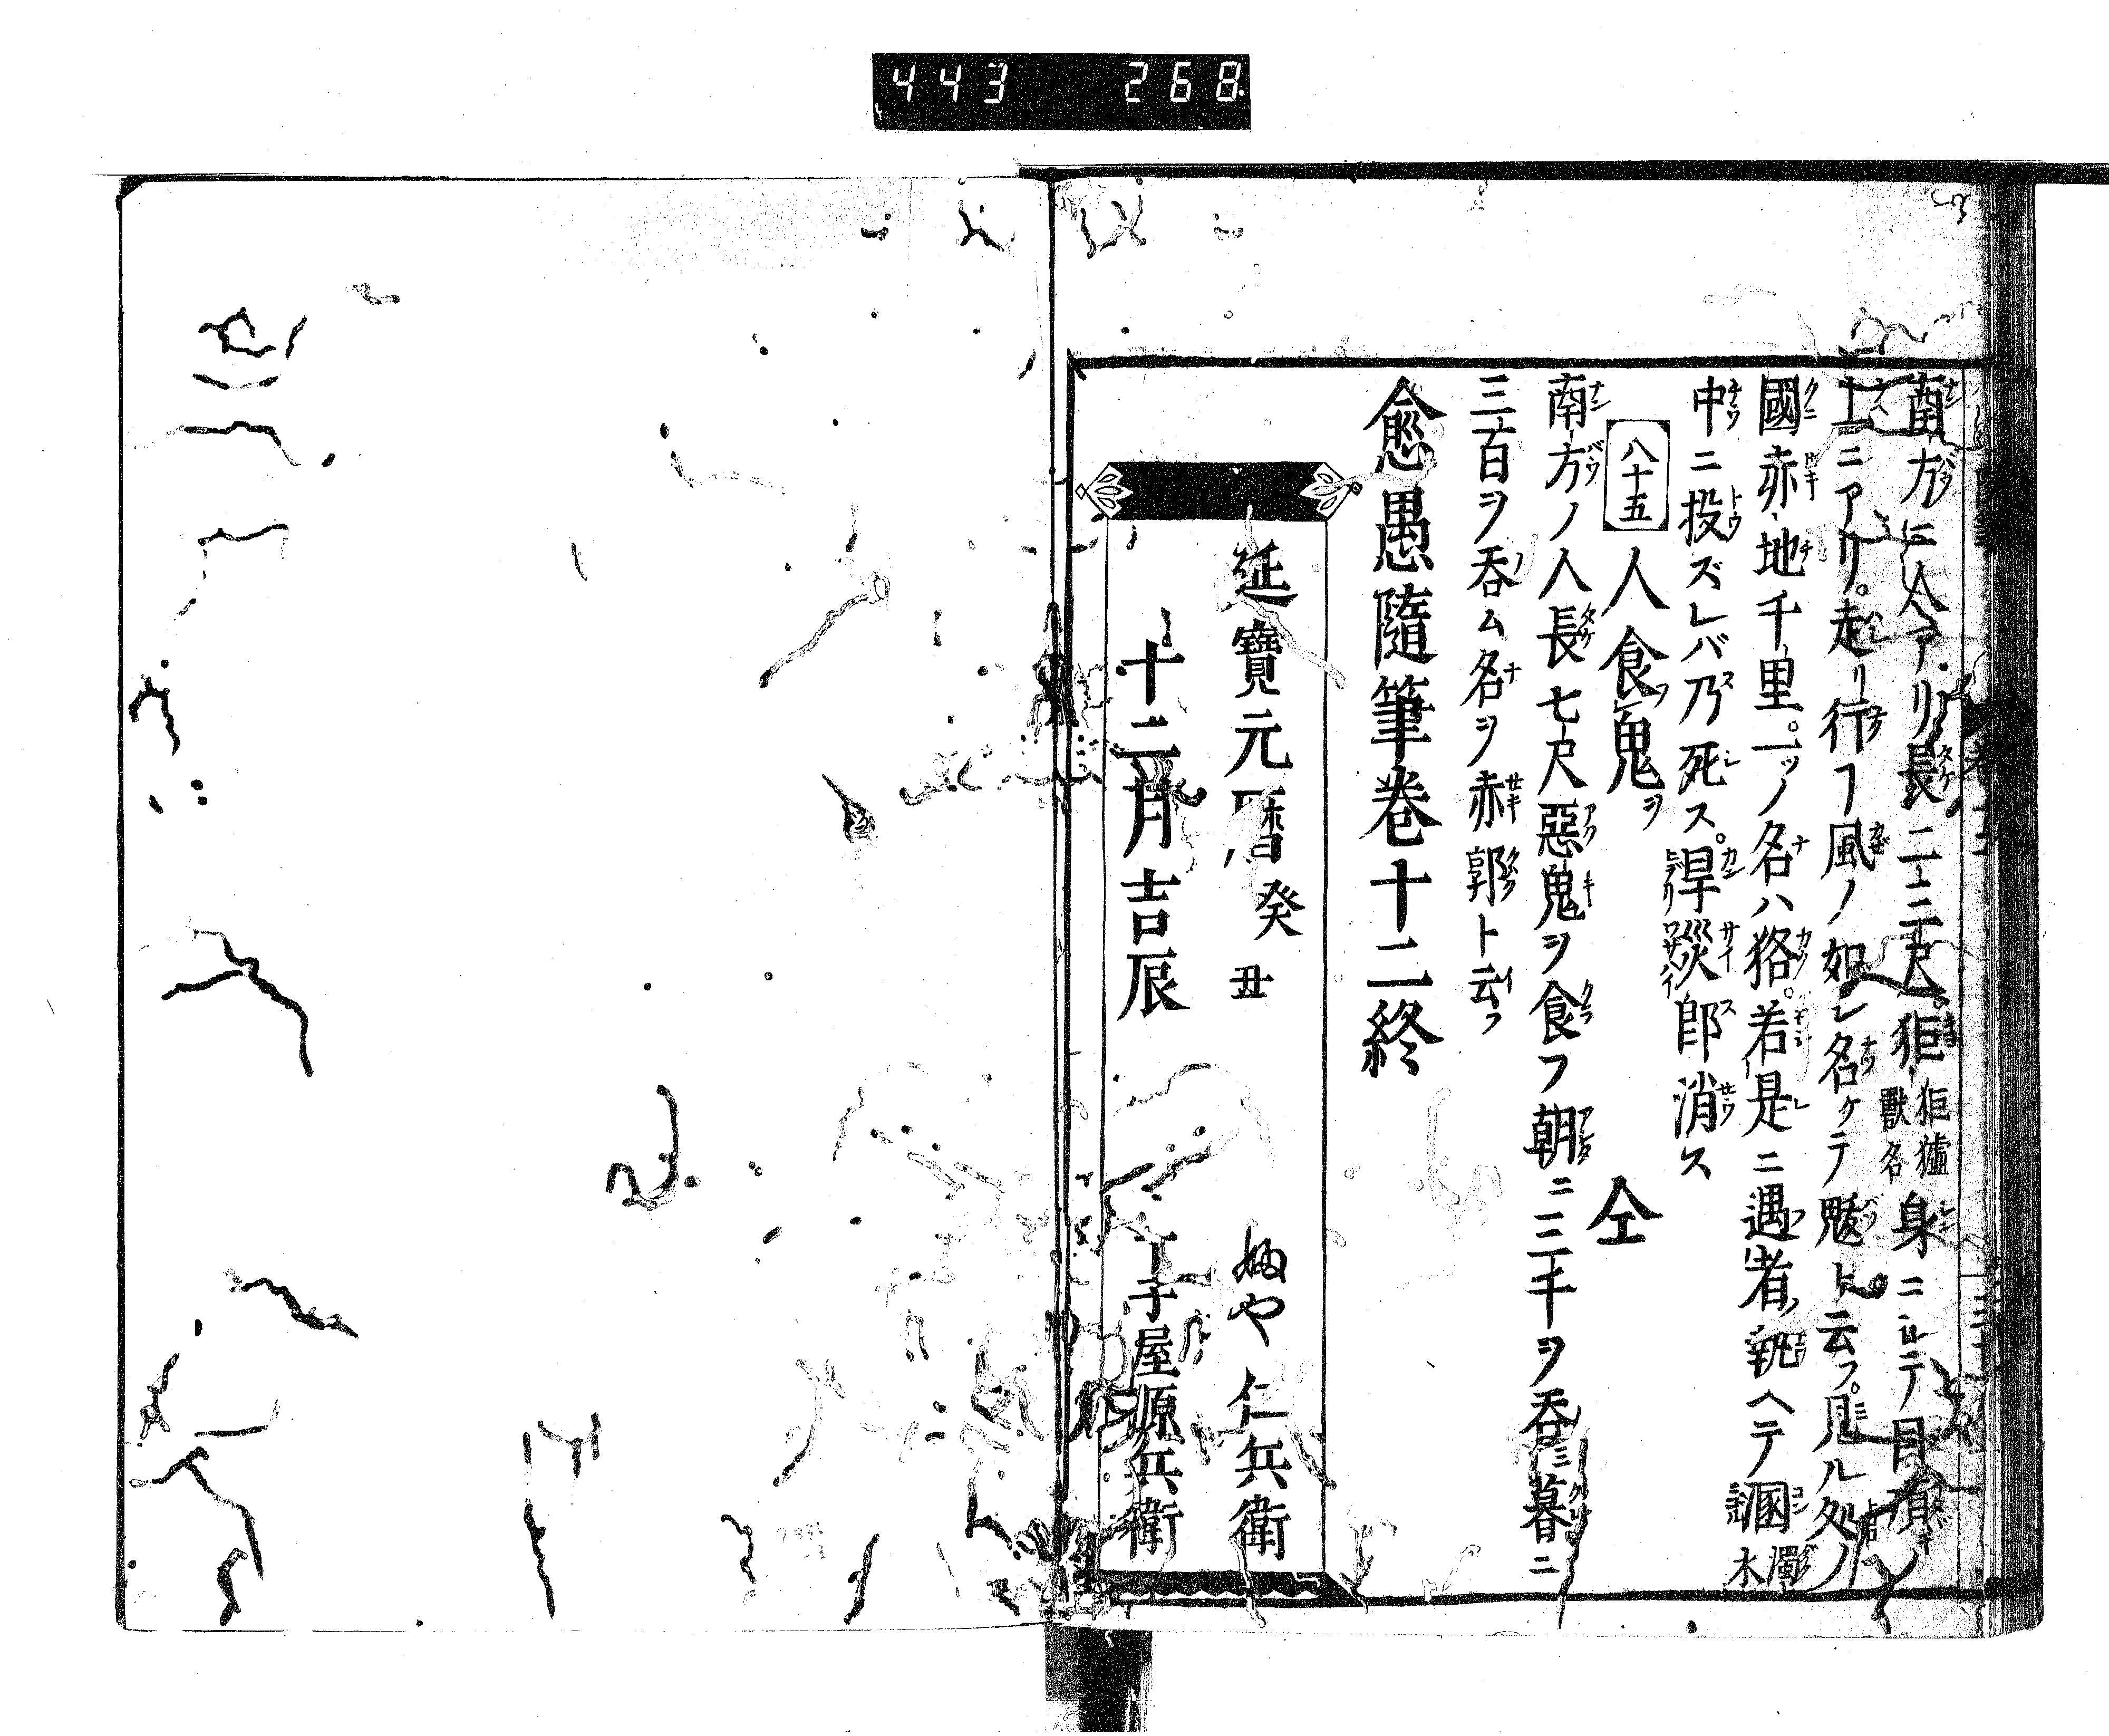 443 268
南方ニ人アリ長二三尺。狚狚獹獣名身ニ〆テ目頂ノ
上ニアリ。走リ行フ風ノ如レ名ケテ魃ト云フ。見ル処ノ
國赤地千里。一ツノ名ハ狢。若是ニ遇者執ヘテ溷濁水
中ニ投ズレバ乃死ス。旱災即消ス
八十五 人食鬼ヲ 仝
南方ノ人長七尺惡鬼ヲ食フ朝ニ三千ヲ呑暮ニ
三百ヲ呑ム名ヲ赤郭ト云フ
愈愚隨筆巻十二終
延寶元暦癸丑 や仁兵衛
十二月吉辰 丁子屋源兵衛